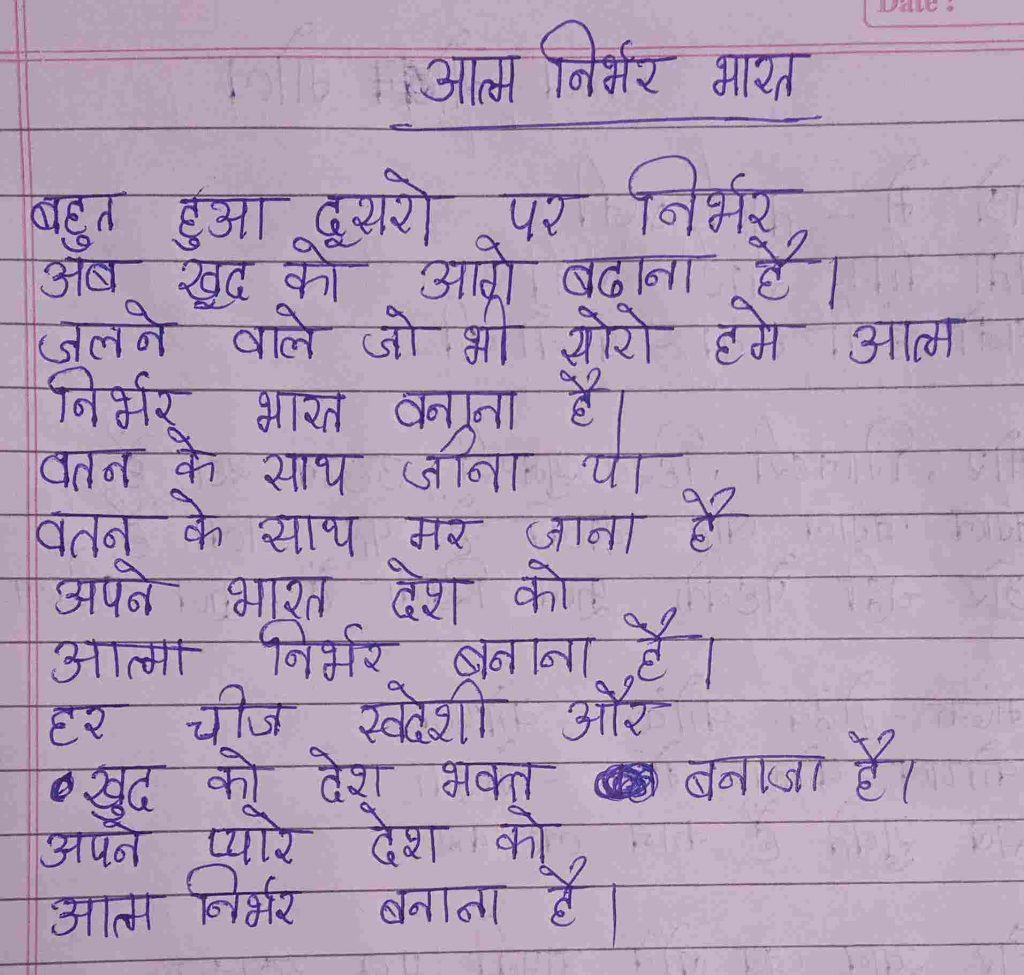 Date :
आत्म निर्भर भारत
बहुत हुआ दूसरो पर निर्भर
अब खुद को आगे बढाना है।
जलने वाले जो भी हमे आत्म
निर्भर भारत बनाना है।
वतन के साथ जीना या
वतन के साथ मर जाना है
अपने भारत देश को
आत्मा निर्भर बनाना है।
हर चीज स्वदेशी और
खुद को देश भक्त बनाजा है।
अपने प्यारे देश को
आत्म निर्भर बनाना है।